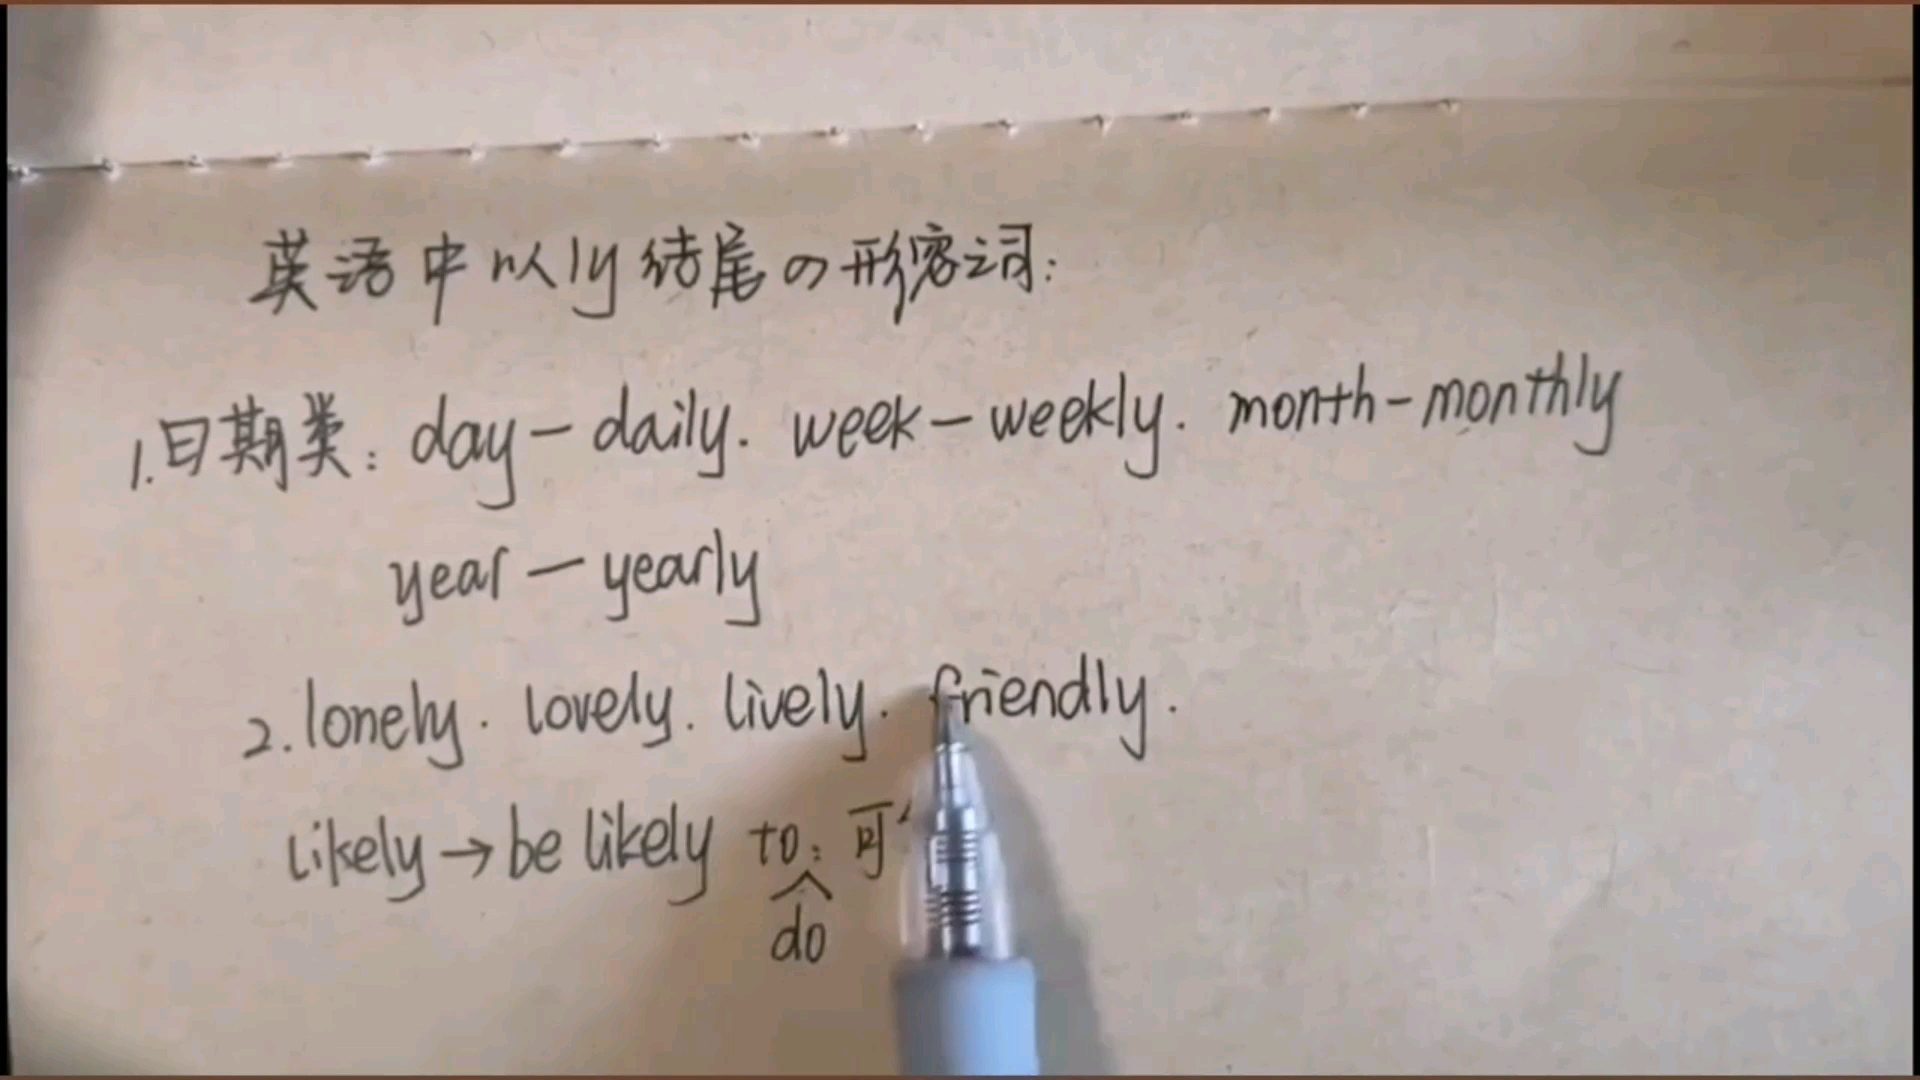 英语中以ly结尾の形容词:
1.日期类: day-daily. week-weekly. month-monthly
year-yearly
2.lonely. lovely. lively. friendly.
likely→be likely to: 可
do